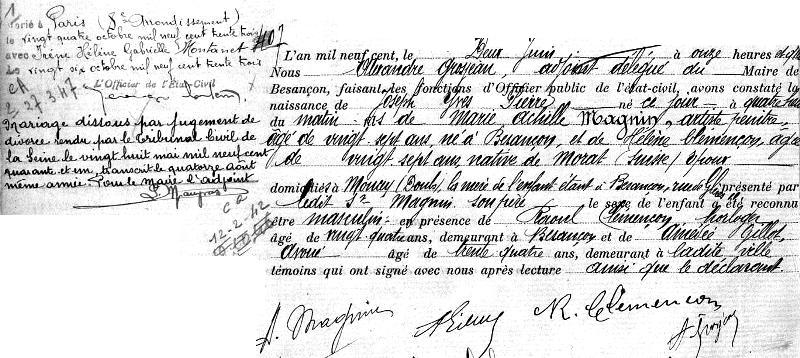 1
Marié à Paris (8e Arrondissement)
le vingt quatre octobre mil neuf cent trente trois
avec Irène Hélène Gabrielle Montanet
Le vingt six octobre mil neuf cent trente trois
L'Officier de l'État-Civil
Mariage dissous par jugement de
divorce rendu par le Tribunal Civil de
la Seine le vingt huit mai mil neuf cent
quarante et un, transcrit le quatorze août
même année. Pour le maire l'adjoint
12-2-42
L'an mil neuf cent, le Deux Juin à onze heures
Nous Alexandre Grosjean, adjoint délégué du Maire de
Besançon, faisant les fonctions d'Officier public de l'état-civil, avons constaté la
naissance de Joseph Yves Pierre né ce jour à quatre heures
du matin fils de Marie Achille Magnin, artiste peintre,
âgé de vingt sept ans, né à Besançon, et de Hélène Clémençon, âgée
de vingt sept ans, native de Morat (Suisse) époux
domiciliés à Moncey (Doubs), la mère de l'enfant étant à Besançon, présenté par
ledit Sr Magnin son père le sexe de l'enfant a été reconnu
être masculin en présence de Raoul Clémençon, horloger
âgé de vingt quatre ans, demeurant à Besançon et de Aimé Gillot,
Avoué âgé de trente quatre ans, demeurant à ladite ville
témoins qui ont signé avec nous après lecture ainsi que le déclarant.
A. Magnin
R. Clémençon